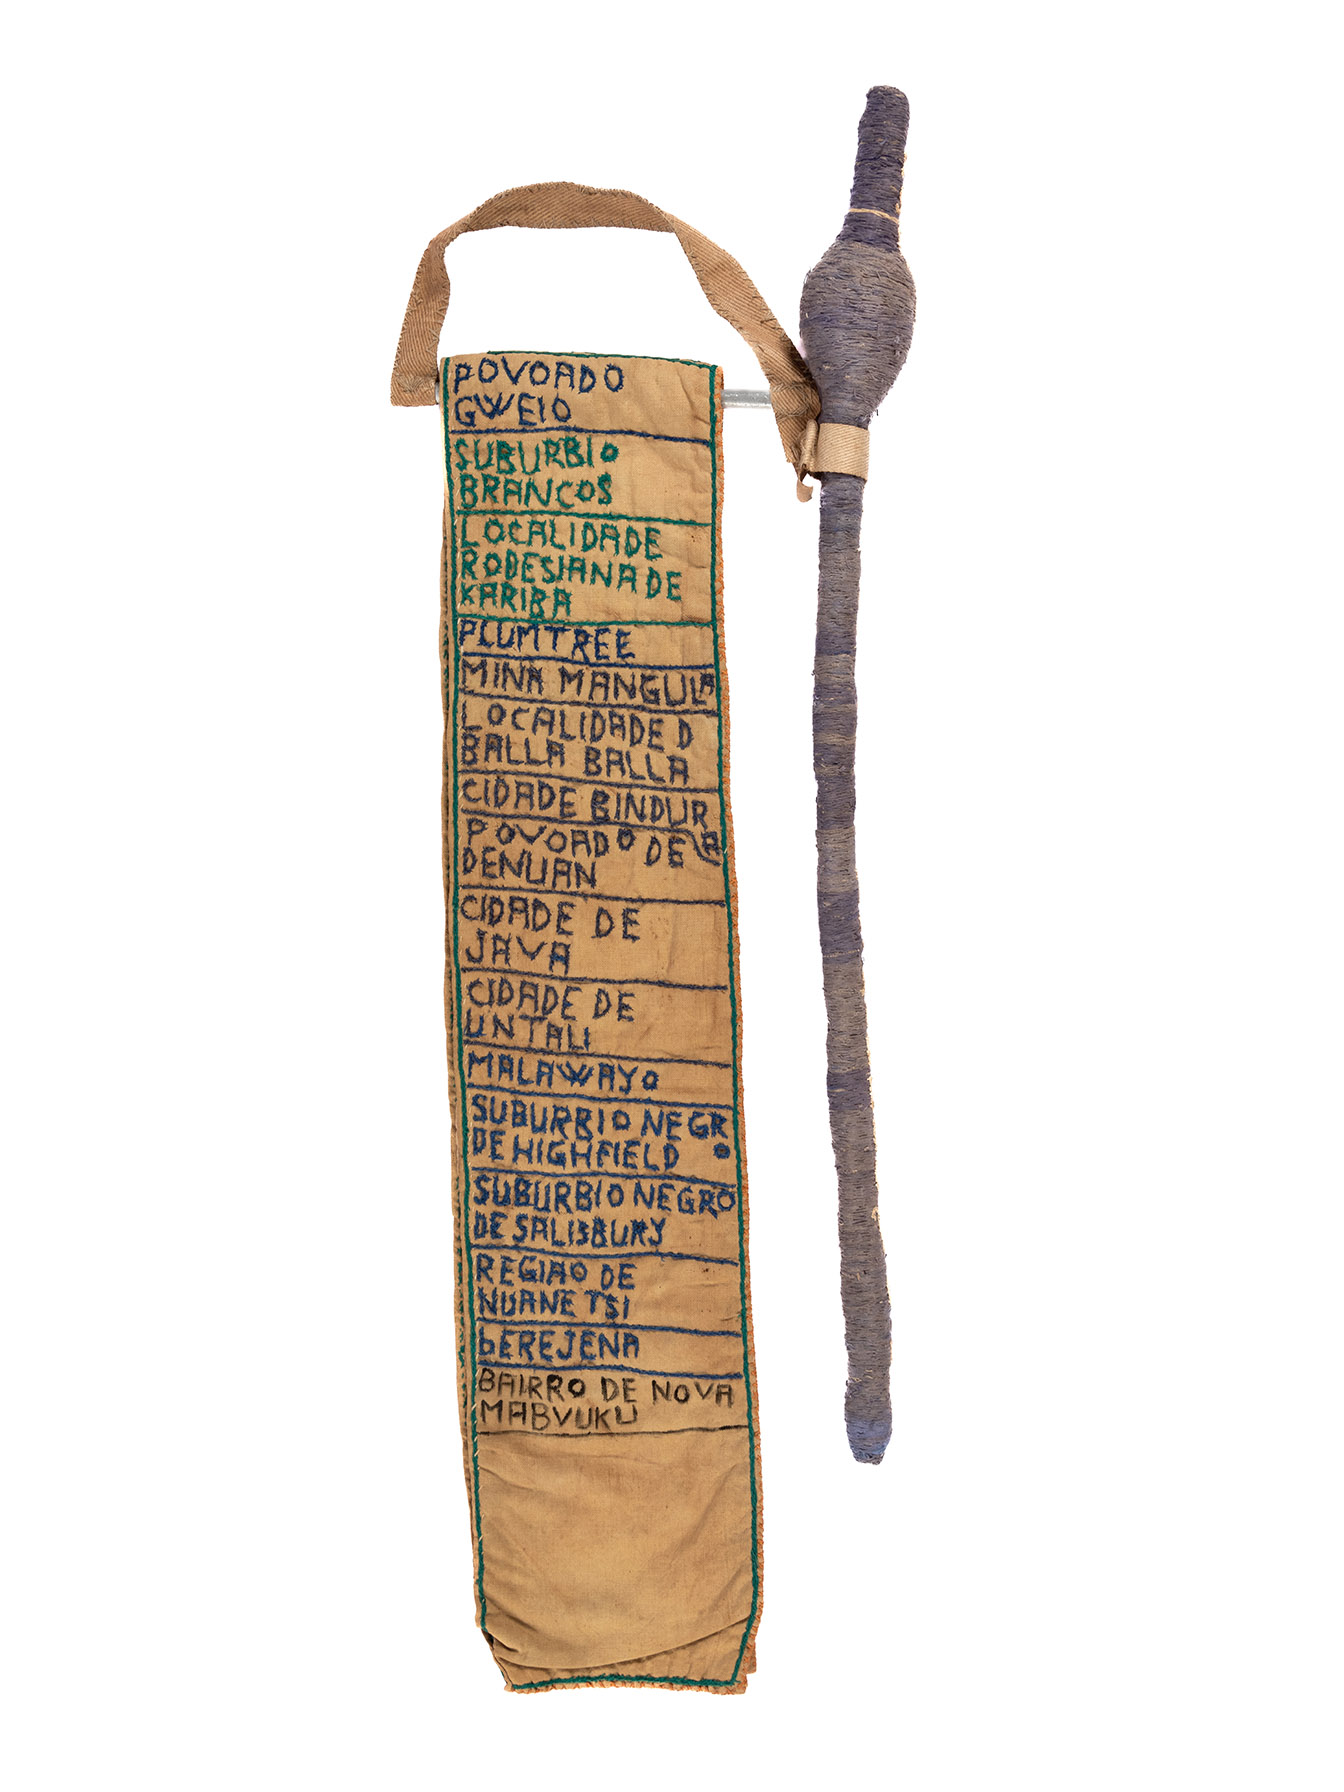 POVOADO
GWEIO
SUBURBIO
BRANCOS
LOCALIDADE
RODESIANA DE
KARIBA
PLUMTREE
MINA MANGULA
LOCALIDADE D
BALLA BALLA
CIDADE BINDURA
POVOADO DE
DENUAN
CIDADE DE
JAVA
CIDADE DE
UNTALI
MALAWAYO
SUBURBIO NEGRO
DE HIGHFIELD
SUBURBIO NEGRO
DE SALISBURY
REGIAO DE
NUANETSI
bEREJENA
BAIRRO DE NOVA
MABVUKU